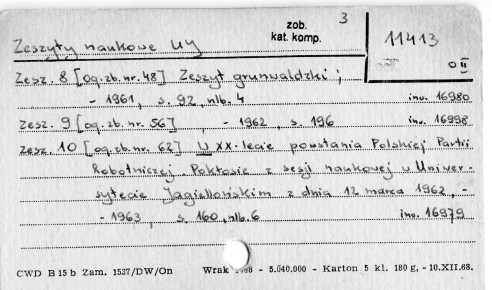 3
zob.
kat. komp.
11413
Zeszyty naukowe UJ
O II
Zesz. 8 [og.zb.nr.48] Zeszyt grunwaldzki ;
- 1961, s. 92, nlb. 4 inw. 16980
Zesz. 9 [og.zb.nr. 56] , - 1962, s. 196 inw. 16998
Zesz. 10 [og.zb.nr. 62] W XX-lecie powstania Polskiej Partii
Robotniczej. Pokłosie z sesji naukowej w Uniwer-
sytecie Jagiellońskim z dnia 12 marca 1962, -
- 1963, s. 160, nlb. 6 inw. 16979
CWD B 15 b Zam. 1537/DW/On Wrak 1968 - 5.040.000 - Karton 5 kl. 180 g, - 10.XII.68.